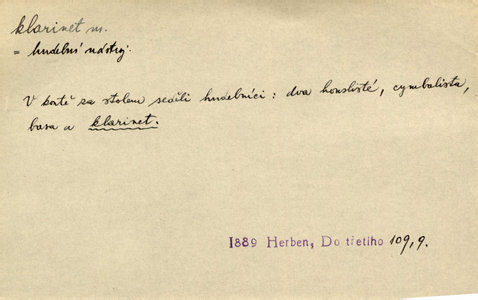 klarinet m.
= hudební nástroj.
V koutě za stolem seděli hudebníci: dva houslisté, cymbalista,
basa a klarinet.
1889 Herben, Do třetího 109, 9.